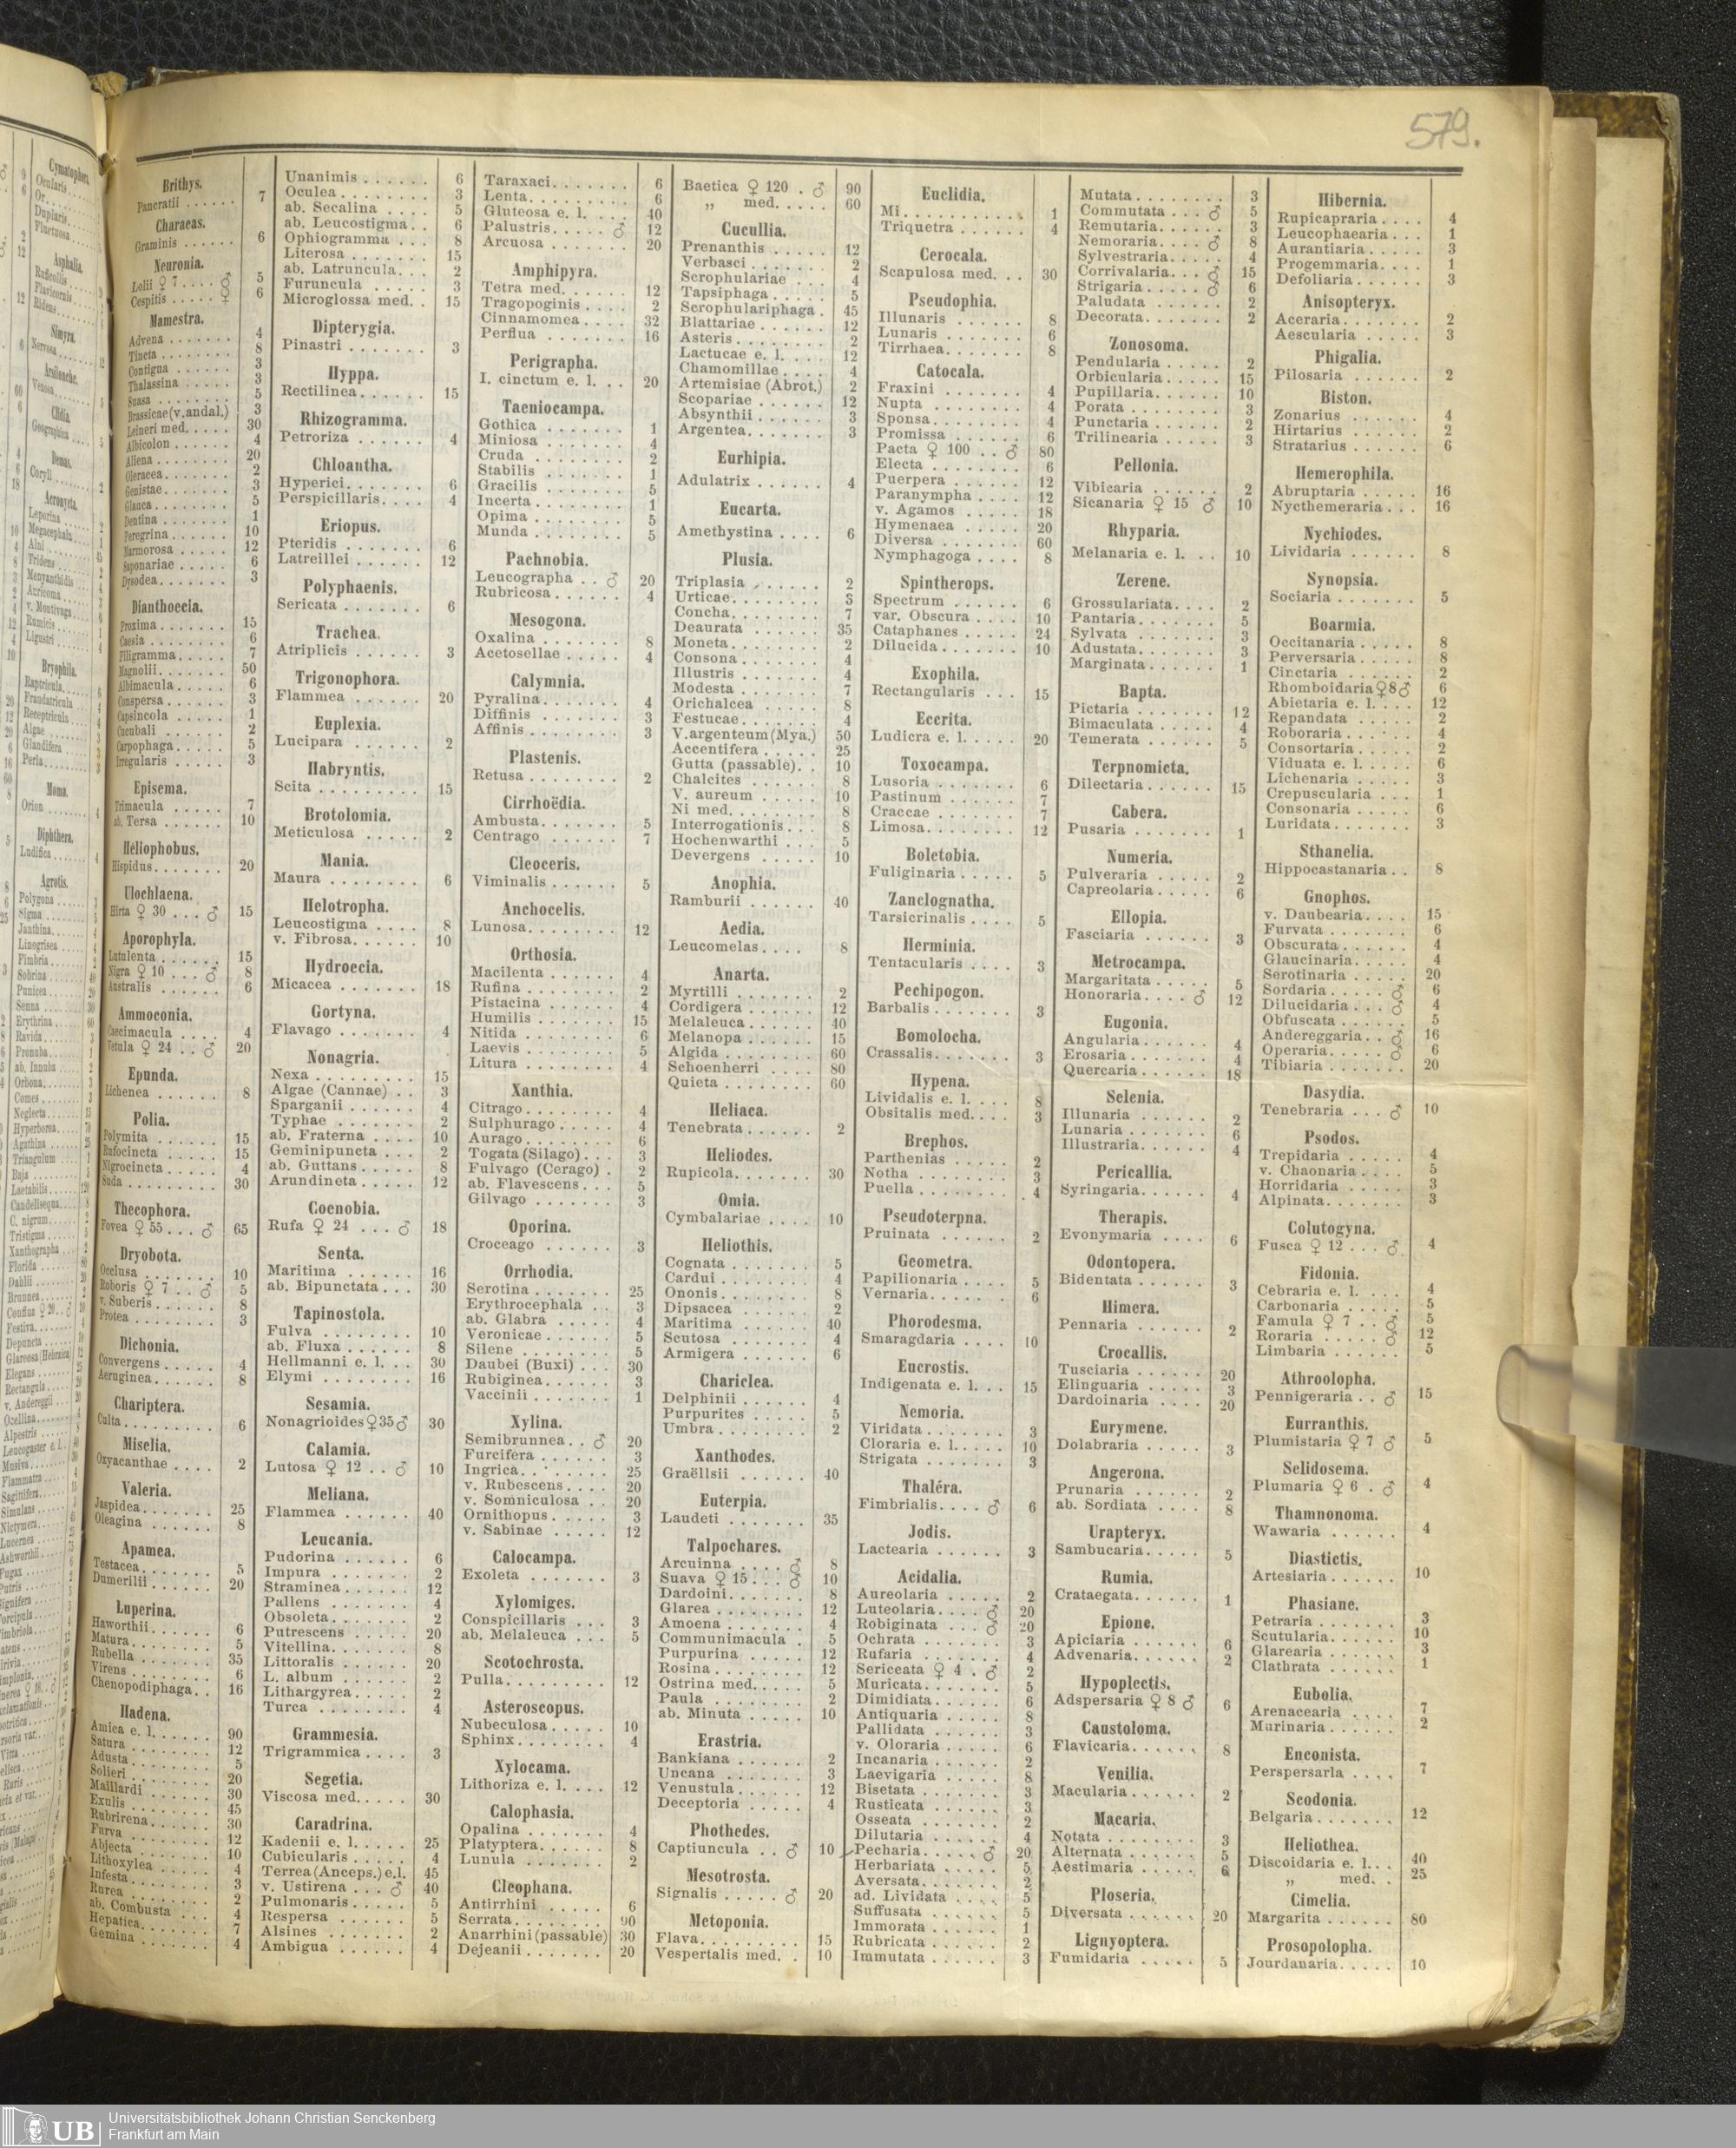 579.
Brithys.
Pancratii . . . . . . 7
Characas.
Graminis . . . . . . 6
Neuronia.
Lolii ♀ 7 . . . . ♂ 5
Cespitis . . . . . ♀ 6
Mamestra.
Advena . . . . . . . 4
Tincta . . . . . . . 8
Contigua . . . . . . 3
Thalassina . . . . . 3
Suasa . . . . . . . . 5
Brassicae (v. andal.) 3
Leineri med. . . . . 30
Albicolon . . . . . . 4
Aliena . . . . . . . . 20
Oleracea . . . . . . . 2
Genistae . . . . . . . 3
Glauca . . . . . . . . 5
Dentina . . . . . . . 1
Peregrina . . . . . . 10
Marmorosa . . . . . 12
Saponariae . . . . . 6
Dysodea . . . . . . . 3
Dianthoecia.
Proxima . . . . . . . 15
Caesia . . . . . . . . 6
Filigramma . . . . . 7
Magnolii . . . . . . . 50
Albimacula . . . . . 6
Conspersa . . . . . . 3
Capsincola . . . . . 1
Cucubali . . . . . . 2
Carpophaga . . . . . 5
Irregularis . . . . . 3
Episema.
Trimacula . . . . . 7
ab. Tersa . . . . . . 10
Heliophobus.
Hispidus . . . . . . . 20
Ulochlaena.
Hirta ♀ 30 . . . ♂ 15
Aporophyla.
Lutulenta . . . . . . 15
Nigra ♀ 10 . . . ♂ 8
Australis . . . . . . 6
Ammoconia.
Caecimacula . . . . 4
Vetula ♀ 24 . . ♂ 20
Epunda.
Lichenea . . . . . . 8
Polia.
Polymita . . . . . . 15
Rufocincta . . . . . 15
Nigrocincta . . . . . 4
Suda . . . . . . . . . 30
Thecophora.
Fovea ♀ 55 . . . ♂ 65
Dryobota.
Occlusa . . . . . . . 10
Roboris ♀ 7 . . ♂ 5
v. Suberis . . . . . . 8
Protea . . . . . . . . 3
Dichonia.
Convergens . . . . . 4
Aeruginea . . . . . . 8
Chariptera.
Culta . . . . . . . . . 6
Miselia.
Oxyacanthae . . . . 2
Valeria.
Jaspidea . . . . . . . 25
Oleagina . . . . . . . 8
Apamea.
Testacea . . . . . . . 5
Dumerilii . . . . . . 20
Luperina.
Haworthii . . . . . . 6
Matura . . . . . . . . 5
Rubella . . . . . . . 35
Virens . . . . . . . . 6
Chenopodiphaga . . 16
Hadena.
Amica e. l. . . . . . 90
Satura . . . . . . . . 12
Adusta . . . . . . . . 5
Solieri . . . . . . . . 20
Maillardi . . . . . . 30
Exulis . . . . . . . . 45
Rubrirena . . . . . . 30
Furva . . . . . . . . 12
Abjecta . . . . . . . 10
Lithoxylea . . . . . 4
Infesta . . . . . . . . 3
Rurea . . . . . . . . 2
ab. Combusta . . . 4
Hepatica . . . . . . . 7
Gemina . . . . . . . 4
Unanimis . . . . . . 6
Oculea . . . . . . . . 3
ab. Secalina . . . . 5
ab. Leucostigma . . 6
Ophiogramma . . . 8
Literosa . . . . . . . 15
ab. Latruncula . . . 2
Furuncula . . . . . 3
Microglossa med. . 15
Dipterygia.
Pinastri . . . . . . . 3
Hyppa.
Rectilinea . . . . . . 15
Rhizogramma.
Petroriza . . . . . . 4
Chloantha.
Hyperici . . . . . . . 6
Perspicillaris . . . . 4
Eriopus.
Pteridis . . . . . . . 6
Latreillei . . . . . . 12
Polyphaenis.
Sericata . . . . . . . 6
Trachea.
Atriplicis . . . . . . 3
Trigonophora.
Flammea . . . . . . 20
Euplexia.
Lucipara . . . . . . 2
Habryntis.
Scita . . . . . . . . . 15
Brotolomia.
Meticulosa . . . . . 2
Mania.
Maura . . . . . . . . 6
Helotropha.
Leucostigma . . . . 8
v. Fibrosa . . . . . . 10
Hydroecia.
Micacea . . . . . . . 18
Gortyna.
Flavago . . . . . . . 4
Nonagria.
Nexa . . . . . . . . . 15
Algae (Cannae) . . 3
Sparganii . . . . . . 4
Typhae . . . . . . . 2
ab. Fraterna . . . . 10
Geminipuncta . . . 2
ab. Guttans . . . . . 8
Arundineta . . . . . 12
Coenobia.
Rufa ♀ 24 . . . ♂ 18
Senta.
Maritima . . . . . . 16
ab. Bipunctata . . . 30
Tapinostola.
Fulva . . . . . . . . 10
ab. Fluxa . . . . . . 8
Hellmanni e. l. . . . 30
Elymi . . . . . . . . 16
Sesamia.
Nonagrioides ♀ 35 ♂ 30
Calamia.
Lutosa ♀ 12 . . ♂ 10
Meliana.
Flammea . . . . . . 40
Leucania.
Pudorina . . . . . . 6
Impura . . . . . . . 2
Straminea . . . . . . 12
Pallens . . . . . . . 4
Obsoleta . . . . . . . 2
Putrescens . . . . . 20
Vitellina . . . . . . . 8
Littoralis . . . . . . 20
L. album . . . . . . 2
Lithargyrea . . . . . 2
Turca . . . . . . . . 4
Grammesia.
Trigrammica . . . . 3
Segetia.
Viscosa med. . . . . 30
Caradrina.
Kadenii e. l. . . . . 25
Cubicularis . . . . . 4
Terrea (Anceps.) e.l. 45
v. Ustirena . . . ♂ 40
Pulmonaris . . . . . 5
Respersa . . . . . . 5
Alsines . . . . . . . 2
Ambigua . . . . . . 4
Taraxaci . . . . . . . 6
Lenta . . . . . . . . 6
Gluteosa e. l. . . . . 40
Palustris . . . . . ♂ 12
Arcuosa . . . . . . . 20
Amphipyra.
Tetra med. . . . . . 12
Tragopoginis . . . . 2
Cinnamomea . . . . 32
Perflua . . . . . . . 16
Perigrapha.
I. cinctum e. l. . . . 20
Taeniocampa.
Gothica . . . . . . . 1
Miniosa . . . . . . . 4
Cruda . . . . . . . . 2
Stabilis . . . . . . . 1
Gracilis . . . . . . . 5
Incerta . . . . . . . 1
Opima . . . . . . . . 5
Munda . . . . . . . . 5
Pachnobia.
Leucographa . . ♂ 20
Rubricosa . . . . . . 4
Mesogona.
Oxalina . . . . . . . 8
Acetosellae . . . . . 4
Calymnia.
Pyralina . . . . . . . 4
Diffinis . . . . . . . 3
Affinis . . . . . . . . 3
Plastenis.
Retusa . . . . . . . . 2
Cirrhoëdia.
Ambusta . . . . . . . 5
Centrago . . . . . . 7
Cleoceris.
Viminalis . . . . . . 5
Anchocelis.
Lunosa . . . . . . . . 12
Orthosia.
Macilenta . . . . . . 4
Rufina . . . . . . . . 2
Pistacina . . . . . . 4
Humilis . . . . . . . 15
Nitida . . . . . . . . 6
Laevis . . . . . . . . 5
Litura . . . . . . . . 4
Xanthia.
Citrago . . . . . . . . 4
Sulphurago . . . . . 4
Aurago . . . . . . . . 6
Togata (Silago) . . . 3
Fulvago (Cerago) . 2
ab. Flavescens . . . 5
Gilvago . . . . . . . 3
Oporina.
Croceago . . . . . . 3
Orrhodia.
Serotina . . . . . . . 25
Erythrocephala . . 3
ab. Glabra . . . . . 4
Veronicae . . . . . . 5
Silene . . . . . . . . 5
Daubei (Buxi) . . . 30
Rubiginea . . . . . . 3
Vaccinii . . . . . . . 1
Xylina.
Semibrunnea . . ♂ 20
Furcifera . . . . . . 3
Ingrica . . . . . . . . 25
v. Rubescens . . . . 20
v. Somniculosa . . 20
Ornithopus . . . . . 3
v. Sabinae . . . . . 12
Calocampa.
Exoleta . . . . . . . 3
Xylomiges.
Conspicillaris . . . 3
ab. Melaleuca . . . 5
Scotochrosta.
Pulla . . . . . . . . . 12
Asteroscopus.
Nubeculosa . . . . . 10
Sphinx . . . . . . . . 4
Xylocama.
Lithoriza e. l. . . . . 12
Calophasia.
Opalina . . . . . . . 4
Platyptera . . . . . . 8
Lunula . . . . . . . 2
Cleophana.
Antirrhini . . . . . 6
Serrata . . . . . . . . 90
Anarrhini (passable) 30
Dejeanii . . . . . . . 20
Baetica ♀ 120 . ♂ 90
„ med. . . . . 60
Cucullia.
Prenanthis . . . . . 12
Verbasci . . . . . . . 2
Scrophulariae . . . 4
Tapsiphaga . . . . . 5
Scrophulariphaga . 45
Blattariae . . . . . . 12
Asteris . . . . . . . . 2
Lactucae e. l. . . . . 12
Chamomillae . . . . 4
Artemisiae (Abrot.) 2
Scopariae . . . . . . 12
Absynthii . . . . . . 3
Argentea . . . . . . . 3
Eurhipia.
Adulatrix . . . . . . 4
Eucarta.
Amethystina . . . . 6
Plusia.
Triplasia . . . . . . 2
Urticae . . . . . . . . 3
Concha . . . . . . . . 7
Deaurata . . . . . . 35
Moneta . . . . . . . . 2
Consona . . . . . . . 4
Illustris . . . . . . . 4
Modesta . . . . . . . 7
Orichalcea . . . . . 8
Festucae . . . . . . . 4
V. argenteum (Mya.) 50
Accentifera . . . . . 25
Gutta (passable) . . 10
Chalcites . . . . . . 8
V. aureum . . . . . 10
Ni med. . . . . . . . 8
Interrogationis . . . 8
Hochenwarthi . . . 5
Devergens . . . . . 10
Anophia.
Ramburii . . . . . . 40
Aedia.
Leucomelas . . . . 8
Anarta.
Myrtilli . . . . . . . 2
Cordigera . . . . . . 12
Melaleuca . . . . . . 40
Melanopa . . . . . . 15
Algida . . . . . . . . 60
Schoenherri . . . . 80
Quieta . . . . . . . . 60
Heliaca.
Tenebrata . . . . . . 2
Heliodes.
Rupicola . . . . . . . 30
Omia.
Cymbalariae . . . . 10
Heliothis.
Cognata . . . . . . . 5
Cardui . . . . . . . . 4
Ononis . . . . . . . . 8
Dipsacea . . . . . . 2
Maritima . . . . . . 40
Scutosa . . . . . . . 4
Armigera . . . . . . 6
Chariclea.
Delphinii . . . . . . 4
Purpurites . . . . . 5
Umbra . . . . . . . . 2
Xanthodes.
Graëllsii . . . . . . 40
Euterpia.
Laudeti . . . . . . . 35
Talpochares.
Arcuinna . . . . ♂ 8
Suava ♀ 15 . . . ♂ 10
Dardoini . . . . . . . 8
Glarea . . . . . . . . 12
Amoena . . . . . . . 4
Communimacula . 5
Purpurina . . . . . 12
Rosina . . . . . . . . 12
Ostrina med. . . . . 5
Paula . . . . . . . . 2
ab. Minuta . . . . . 10
Erastria.
Bankiana . . . . . . 2
Uncana . . . . . . . 3
Venustula . . . . . . 12
Deceptoria . . . . . 4
Phothedes.
Captiuncula . . ♂ 10
Mesotrosta.
Signalis . . . . . ♂ 20
Metoponia.
Flava . . . . . . . . . 15
Vespertalis med. . 10
Euclidia.
Mi . . . . . . . . . . . 1
Triquetra . . . . . . 4
Cerocala.
Scapulosa med. . . . 30
Pseudophia.
Illunaris . . . . . . . 8
Lunaris . . . . . . . 6
Tirrhaea . . . . . . . 8
Catocala.
Fraxini . . . . . . . 4
Nupta . . . . . . . . 4
Sponsa . . . . . . . . 4
Promissa . . . . . . 6
Pacta ♀ 100 . . ♂ 80
Electa . . . . . . . . 6
Puerpera . . . . . . 12
Paranympha . . . . 12
v. Agamos . . . . . 18
Hymenaea . . . . . 20
Diversa . . . . . . . 60
Nymphagoga . . . . 8
Spintherops.
Spectrum . . . . . . 6
var. Obscura . . . . 10
Cataphanes . . . . . 24
Dilucida . . . . . . . 10
Exophila.
Rectangularis . . . 15
Eccrita.
Ludicra e. l. . . . . 20
Toxocampa.
Lusoria . . . . . . . 6
Pastinum . . . . . . 7
Craccae . . . . . . . 7
Limosa . . . . . . . . 12
Boletobia.
Fuliginaria . . . . . 5
Zanclognatha.
Tarsicrinalis . . . . 5
Herminia.
Tentacularis . . . . 3
Pechipogon.
Barbalis . . . . . . . 3
Bomolocha.
Crassalis . . . . . . . 3
Hypena.
Lividalis e. l. . . . . 8
Obsitalis med. . . . 3
Brephos.
Parthenias . . . . . 2
Notha . . . . . . . . 3
Puella . . . . . . . . 4
Pseudoterpna.
Pruinata . . . . . . 2
Geometra.
Papilionaria . . . . 5
Vernaria . . . . . . . 6
Phorodesma.
Smaragdaria . . . . 10
Eucrostis.
Indigenata e. l. . . 15
Nemoria.
Viridata . . . . . . . 3
Cloraria e. l. . . . . 10
Strigata . . . . . . . 3
Thaléra.
Fimbrialis . . . . ♂ 6
Jodis.
Lactearia . . . . . . 3
Acidalia.
Aureolaria . . . . . 2
Luteolaria . . . . ♂ 20
Robiginata . . . ♂ 20
Ochrata . . . . . . . 3
Rufaria . . . . . . . 4
Sericeata ♀ 4 . ♂ 2
Muricata . . . . . . . 5
Dimidiata . . . . . . 6
Antiquaria . . . . . 8
Pallidata . . . . . . 3
v. Oloraria . . . . . 6
Incanaria . . . . . . 2
Laevigaria . . . . . 8
Bisetata . . . . . . . 3
Rusticata . . . . . . 3
Osseata . . . . . . . 2
Dilutaria . . . . . . 4
Pecharia . . . . . ♂ 20
Herbariata . . . . . 5
Aversata . . . . . . . 2
ad. Lividata . . . . 5
Suffusata . . . . . . 5
Immorata . . . . . . 1
Rubricata . . . . . . 2
Immutata . . . . . . 3
Mutata . . . . . . . . 3
Commutata . . . ♂ 5
Remutaria . . . . . . 3
Nemoraria . . . . ♂ 8
Sylvestraria . . . . . 4
Corrivalaria . . . ♂ 15
Strigaria . . . . . ♂ 6
Paludata . . . . . . 2
Decorata . . . . . . . 2
Zonosoma.
Pendularia . . . . . 2
Orbicularia . . . . . 15
Pupillaria . . . . . . 10
Porata . . . . . . . . 3
Punctaria . . . . . . 2
Trilinearia . . . . . 3
Pellonia.
Vibicaria . . . . . . 2
Sicanaria ♀ 15 ♂ 10
Rhyparia.
Melanaria e. l. . . 10
Zerene.
Grossulariata . . . . 2
Pantaria . . . . . . . 5
Sylvata . . . . . . . 3
Adustata . . . . . . . 3
Marginata . . . . . . 1
Bapta.
Pictaria . . . . . . . 12
Bimaculata . . . . . 4
Temerata . . . . . . 5
Terpnomicta.
Dilectaria . . . . . . 15
Cabera.
Pusaria . . . . . . . 1
Numeria.
Pulveraria . . . . . 2
Capreolaria . . . . . 6
Ellopia.
Fasciaria . . . . . . 3
Metrocampa.
Margaritata . . . . . 5
Honoraria . . . . ♂ 12
Eugonia.
Angularia . . . . . . 4
Erosaria . . . . . . . 4
Quercaria . . . . . . 18
Selenia.
Illunaria . . . . . . 2
Lunaria . . . . . . . 6
Illustraria . . . . . . 4
Pericallia.
Syringaria . . . . . . 4
Therapis.
Evonymaria . . . . 6
Odontopera.
Bidentata . . . . . . 3
Himera.
Pennaria . . . . . . 2
Crocallis.
Tusciaria . . . . . . 20
Elinguaria . . . . . 3
Dardoinaria . . . . 20
Eurymene.
Dolabraria . . . . . 3
Angerona.
Prunaria . . . . . . 2
ab. Sordiata . . . . 8
Urapteryx.
Sambucaria . . . . . 5
Rumia.
Crataegata . . . . . 1
Epione.
Apiciaria . . . . . . 6
Advenaria . . . . . . 2
Hypoplectis.
Adspersaria ♀ 8 ♂ 6
Caustoloma.
Flavicaria . . . . . . 8
Venilia.
Macularia . . . . . . 2
Macaria.
Notata . . . . . . . . 3
Alternata . . . . . . 5
Aestimaria . . . . . 6
Ploseria.
Diversata . . . . . . 20
Lignyoptera.
Fumidaria . . . . . 5
Hibernia.
Rupicapraria . . . . 4
Leucophaearia . . . 1
Aurantiaria . . . . . 3
Progemmaria . . . . 1
Defoliaria . . . . . . 3
Anisopteryx.
Aceraria . . . . . . . 2
Aescularia . . . . . 3
Phigalia.
Pilosaria . . . . . . 2
Biston.
Zonarius . . . . . . 4
Hirtarius . . . . . . 2
Stratarius . . . . . . 6
Hemerophila.
Abruptaria . . . . . 16
Nycthemeraria . . . 16
Nychiodes.
Lividaria . . . . . . 8
Synopsia.
Sociaria . . . . . . . 5
Boarmia.
Occitanaria . . . . . 8
Perversaria . . . . . 8
Cinctaria . . . . . . 2
Rhomboidaria ♀ 8 ♂ 6
Abietaria e. l. . . . 12
Repandata . . . . . 2
Roboraria . . . . . . 4
Consortaria . . . . . 2
Viduata e. l. . . . . 6
Lichenaria . . . . . 3
Crepuscularia . . . 1
Consonaria . . . . . 6
Luridata . . . . . . . 3
Sthanelia.
Hippocastanaria . . 8
Gnophos.
v. Daubearia . . . . 15
Furvata . . . . . . . 6
Obscurata . . . . . . 4
Glaucinaria . . . . . 4
Serotinaria . . . . . 20
Sordaria . . . . . ♂ 6
Dilucidaria . . . ♂ 4
Obfuscata . . . . . . 5
Andereggaria . . ♂ 16
Operaria . . . . . ♂ 6
Tibiaria . . . . . . . 20
Dasydia.
Tenebraria . . . ♂ 10
Psodos.
Trepidaria . . . . . 4
v. Chaonaria . . . . 5
Horridaria . . . . . 3
Alpinata . . . . . . . 3
Colutogyna.
Fusca ♀ 12 . . . ♂ 4
Fidonia.
Cebraria e. l. . . . . 4
Carbonaria . . . . . 5
Famula ♀ 7 . . ♂ 5
Roraria . . . . . ♂ 12
Limbaria . . . . . . 5
Athroolopha.
Pennigeraria . . ♂ 15
Eurranthis.
Plumistaria ♀ 7 ♂ 5
Selidosema.
Plumaria ♀ 6 . ♂ 4
Thamnonoma.
Wawaria . . . . . . 4
Diastictis.
Artesiaria . . . . . . 10
Phasiane.
Petraria . . . . . . . 3
Scutularia . . . . . . 10
Glarearia . . . . . . 3
Clathrata . . . . . . 1
Eubolia.
Arenacearia . . . . 7
Murinaria . . . . . . 2
Enconista.
Perspersarla . . . . 7
Scodonia.
Belgaria . . . . . . . 12
Heliothea.
Discoidaria e. l. . . 40
„ med. . 25
Cimelia.
Margarita . . . . . . 80
Prosopolopha.
Jourdanaria . . . . . 10
UB
Universitätsbibliothek Johann Christian Senckenberg
Frankfurt am Main